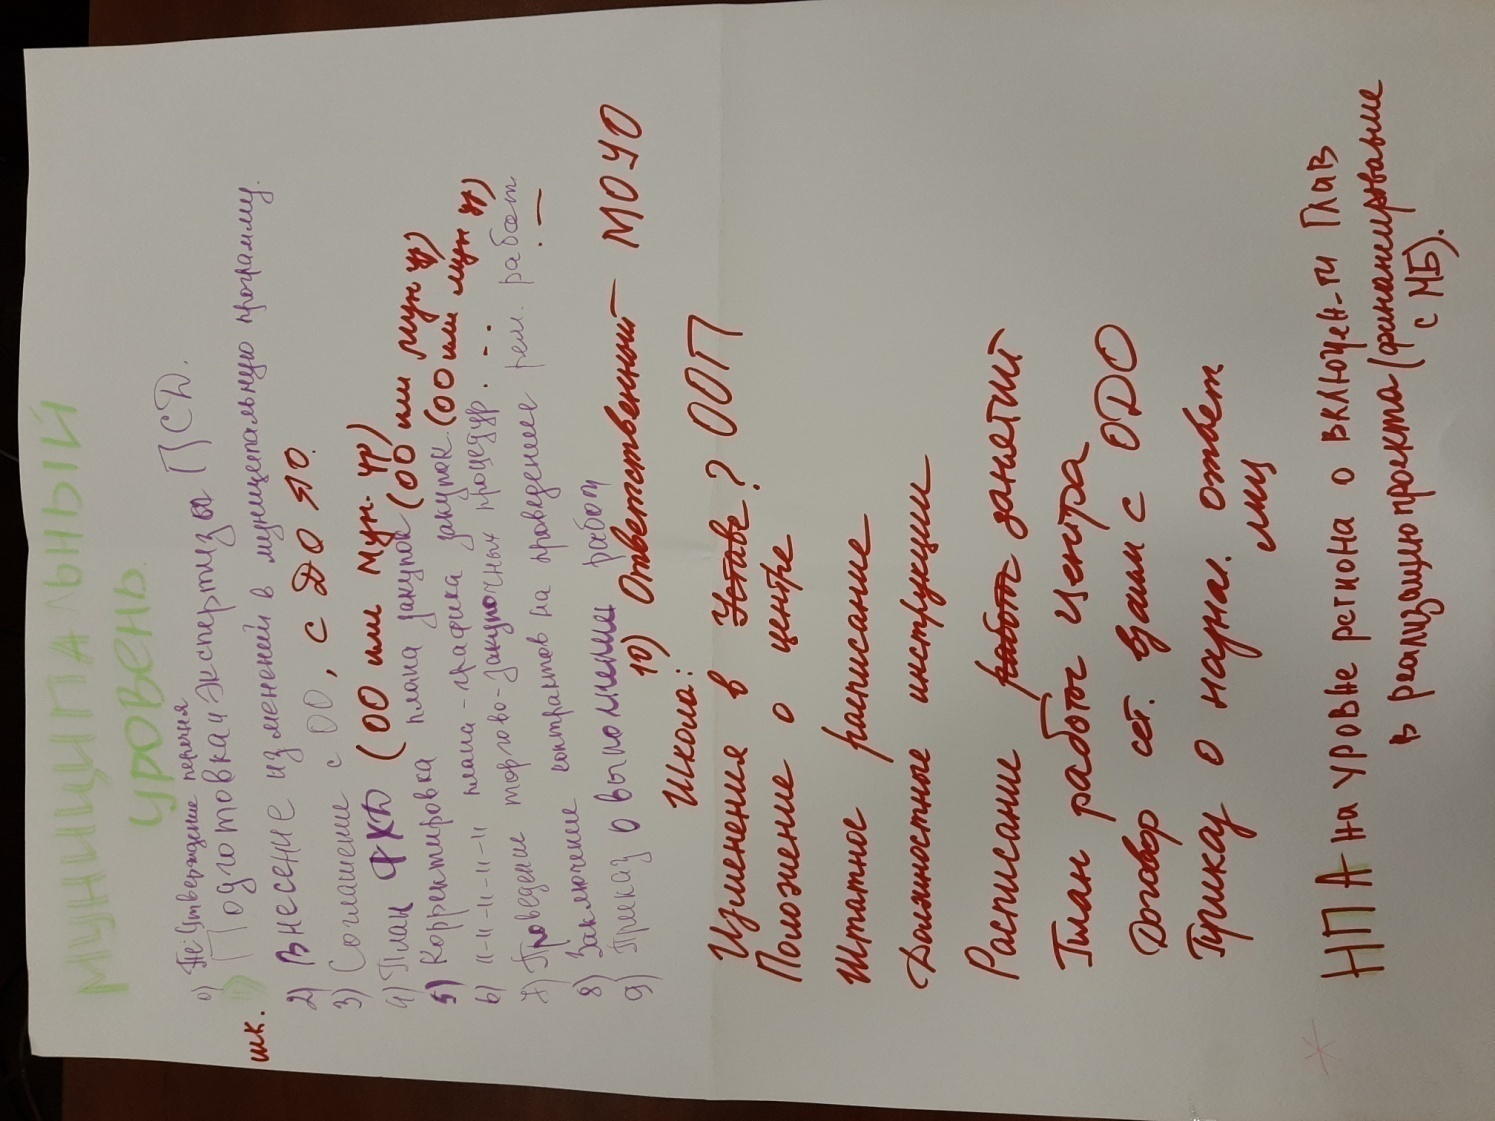 МУНИЦИПАЛЬНЫЙ
УРОВЕНЬ
0) Утверждение перечня
шк. 1) Подготовка и экспертиза ПСД.
2) Внесение изменений в муниципальную программу.
3) Соглашение с ОО, с ДО ЯО.
4) План ФХД (ОО или мун. ур)
5) Корректировка плана закупок (ОО или мун ур)
6) и-и-и-и-и плана-графика закупок (ОО или мун ур)
7) Проведение торгово-закупочных процедур. . . .
8) Заключение контрактов на проведение рем. работ
9) Приказ о выполнении работ . —
10) Ответственный — МОУО
Школа:
Изменения в Уставе? ООП
Положение о центре
Штатное расписание
Должностные инструкции
Расписание работ занятий
План работы центра
Договор сет. взаим с ОДО
Приказ о назнач. ответ
лиц
* НПА на уровне региона о включен-ти
в реализацию проекта (финансирование
с МБ).